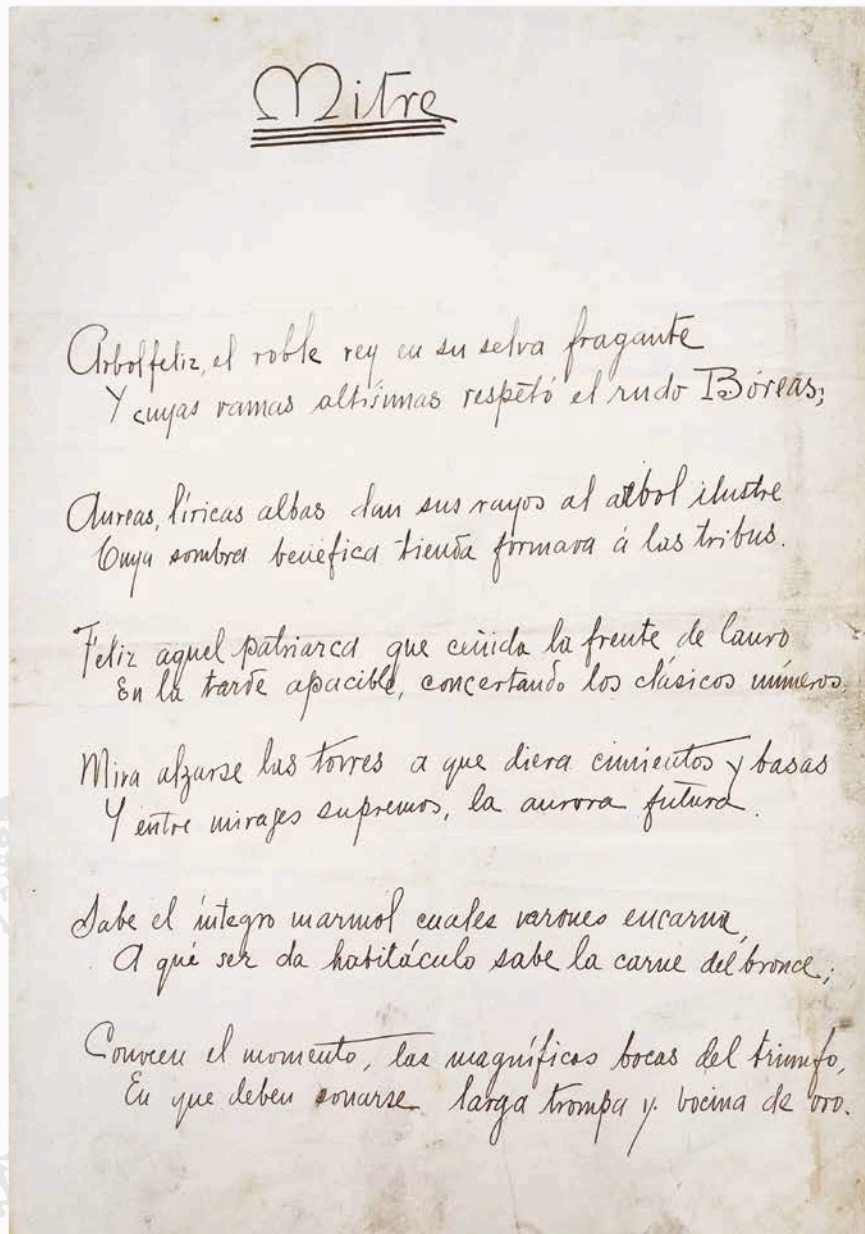 Mitre
Arbol feliz, el roble rey en su selva fragante
Y cuyas ramas altísimas respetó el rudo Bóreas;
Aureas, líricas albas dan sus rayos al arbol ilustre
Cuya sombra benéfica tienda formara á las tribus.
Feliz aquel patriarca que ceñida la frente de lauro
En la tarde apacible, concertando los clásicos números,
Mira alzarse las torres a que diera cimientos y basas
Y entre mirages supremos, la aurora futura.
Sabe el íntegro marmol cuales varones encarna,
A qué ser da habitáculo sabe la carne del bronce;
Conocen el momento, las magníficas bocas del triumfo,
En que deben sonarse larga trompa y bocina de oro.